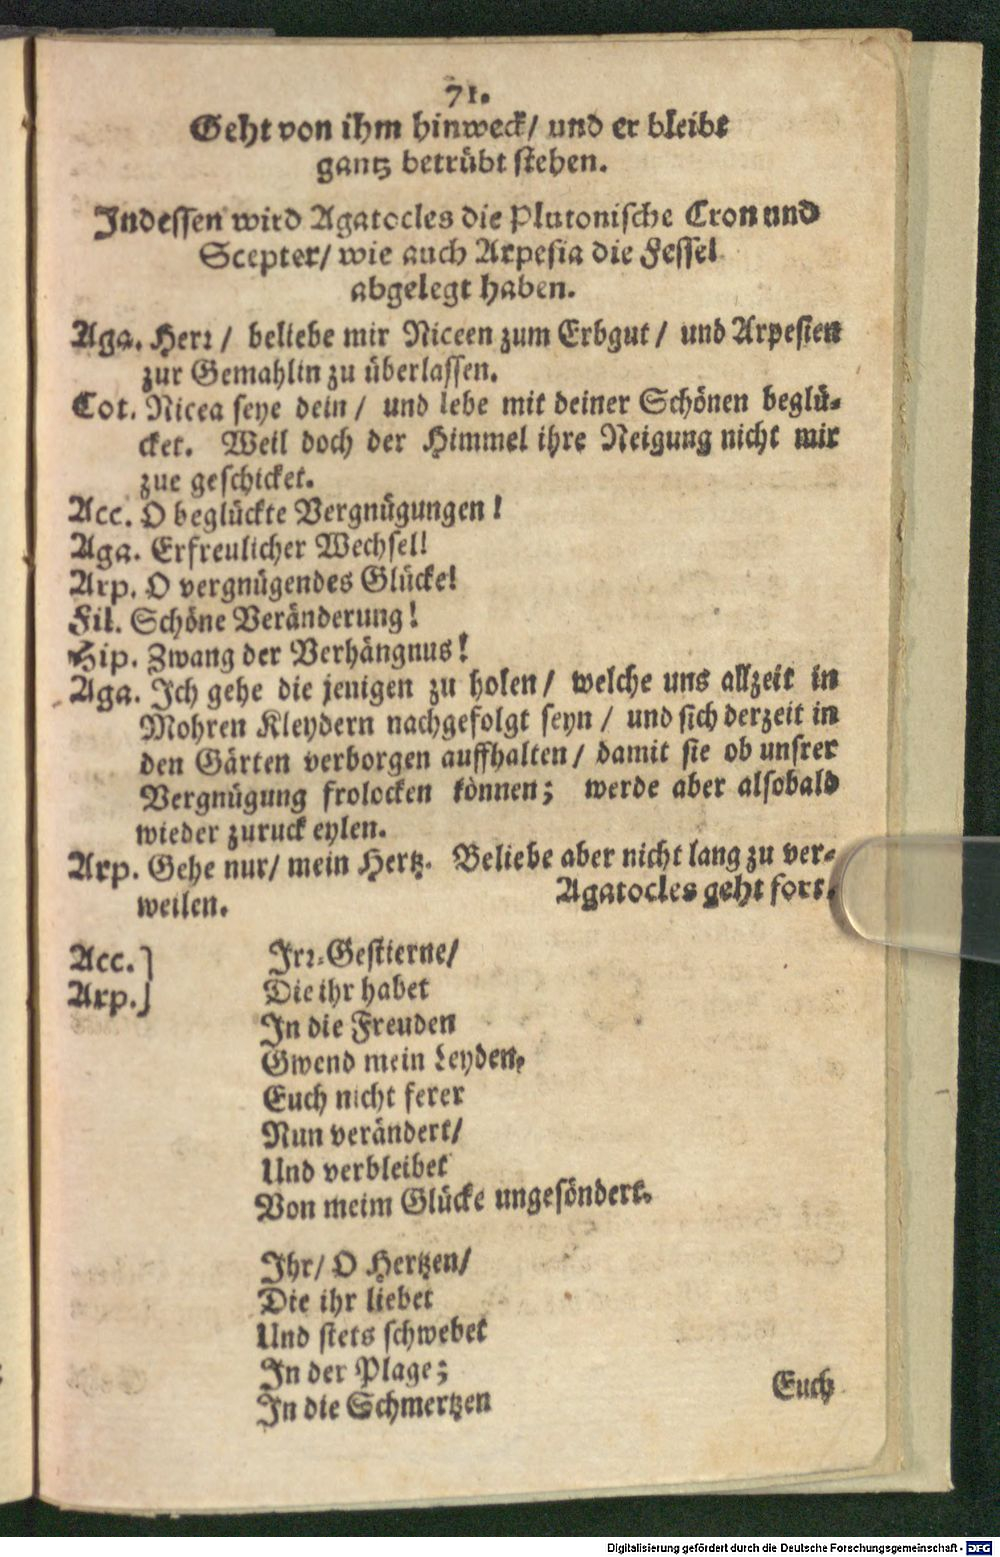 71.
Geht von ihm hinweck/ und er bleibt
gantz betrübt stehen.
Indessen wird Agatocles die Plutonische Cron und
Scepter/ wie auch Arpesia die Fessel
abgelegt haben.
Aga. Herr/ beliebe mir Niceen zum Erbgut/ und Arpesien
zur Gemahlin zu überlassen.
Cot. Nicea seye dein/ und lebe mit deiner Schönen beglü-
cket. Weil doch der Himmel ihre Neigung nicht mir
zue geschicket.
Acc. O beglückte Vergnügungen!
Aga. Erfreulicher Wechsel!
Arp. O vergnügendes Glücke!
Fil. Schöne Veränderung!
Hip. Zwang der Verhängnus!
Aga. Ich gehe die jenigen zu holen/ welche uns allzeit in
Mohren Kleydern nachgefolgt seyn/ und sich derzeit in
den Gärten verborgen auffhalten/ damit sie ob unsrer
Vergnügung frolocken können; werde aber alsobald
wieder zuruck eylen.
Arp. Gehe nur/ mein Hertz. Beliebe aber nicht lang zu ver-
weilen. Agatocles geht fort.
Acc. Irr-Gestierne/
Arp. Die ihr habet
In die Freuden
Gwend mein Leyden,
Euch nicht ferer
Nun verändert/
Und verbleibet
Von meim Glücke ungesöndert.
Ihr/ O Hertzen/
Die ihr liebet
Und stets schwebet
In der Plage;
In die Schmertzen
Euch
Digitalisierung gefördert durch die Deutsche Forschungsgemeinschaft - DFG